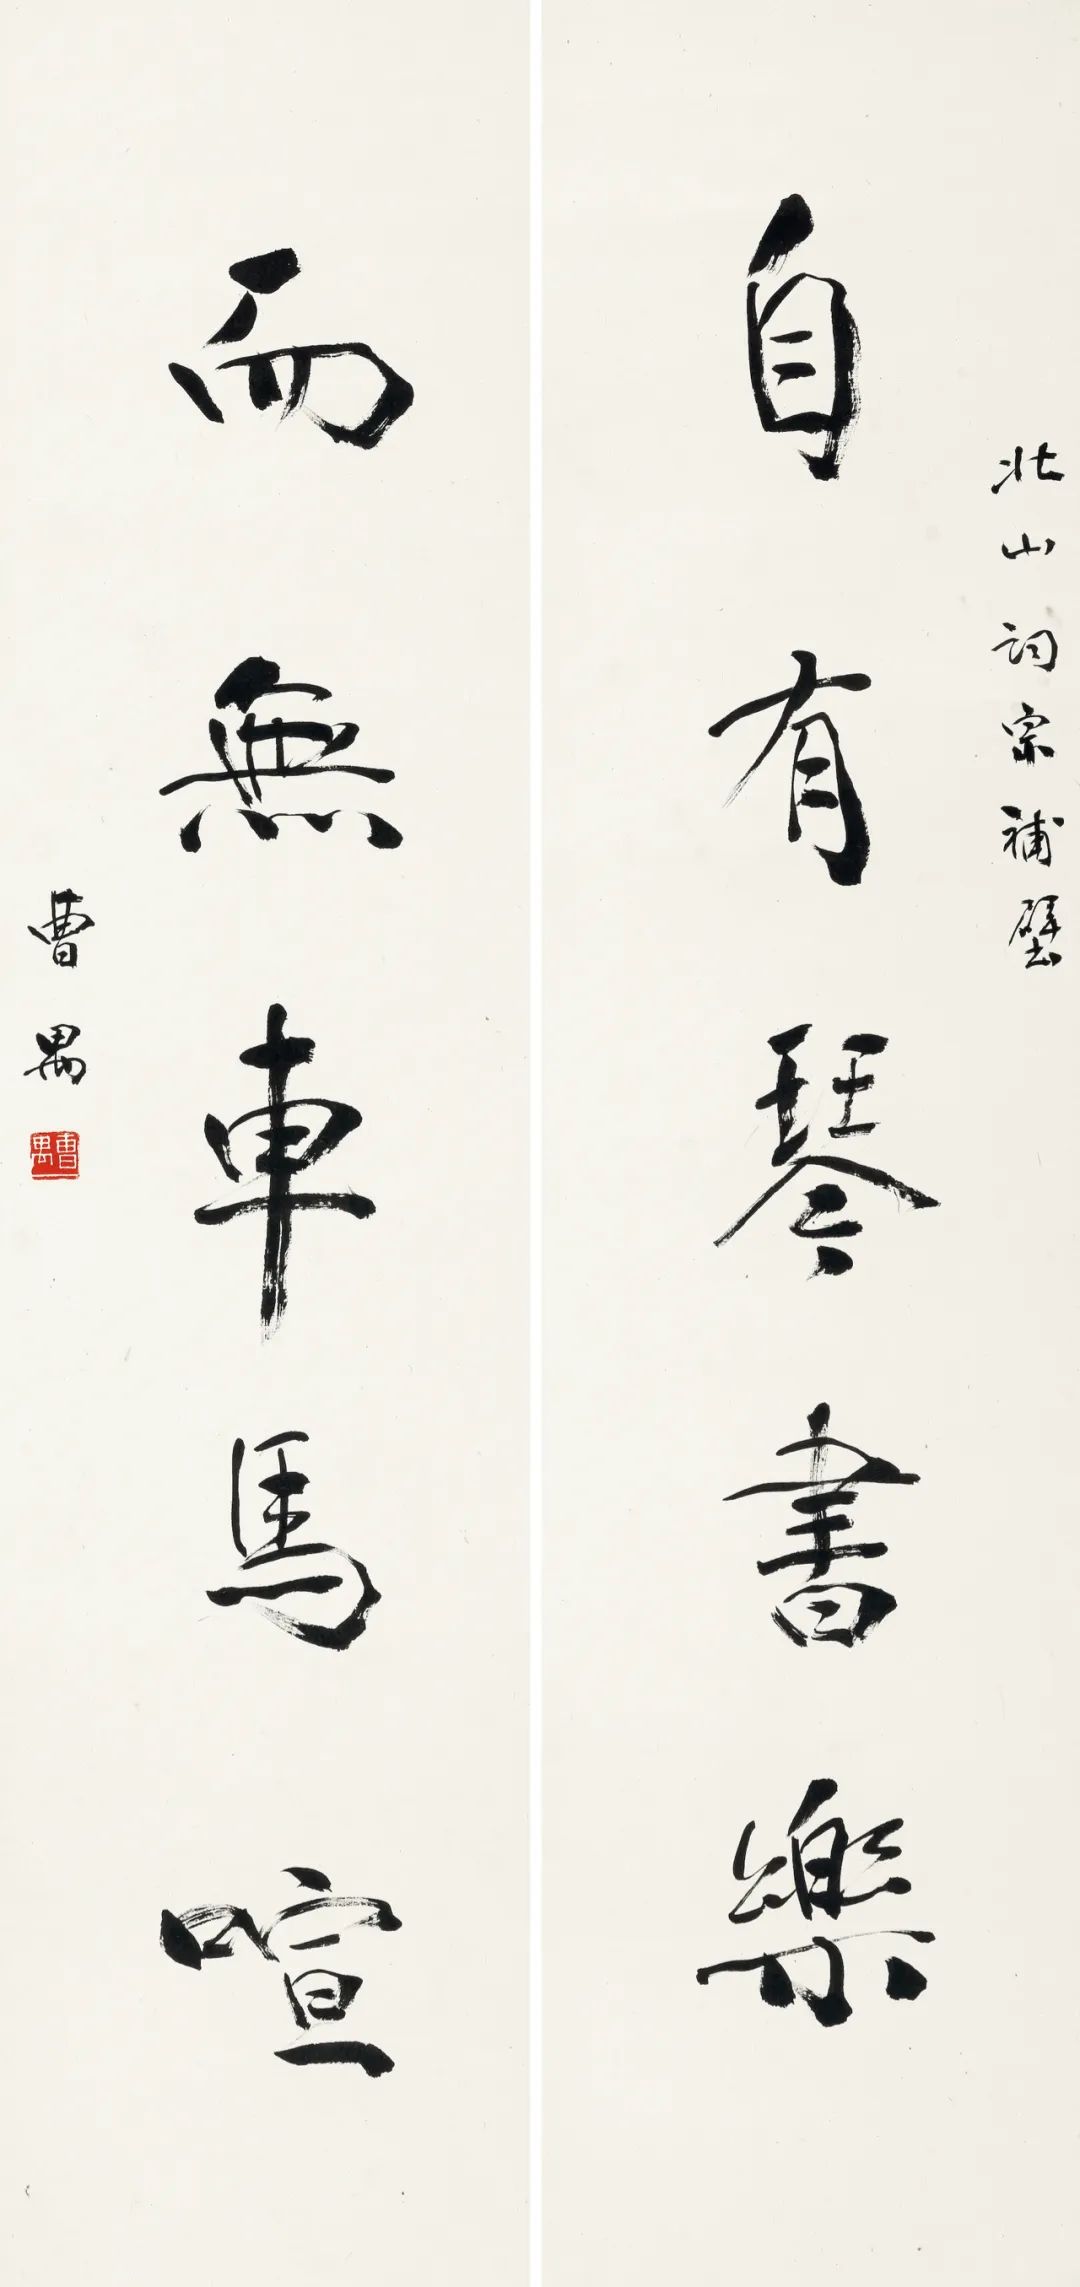 北山詞宗補壁
自有琴書樂
而無車馬喧
曹禺
曹禺